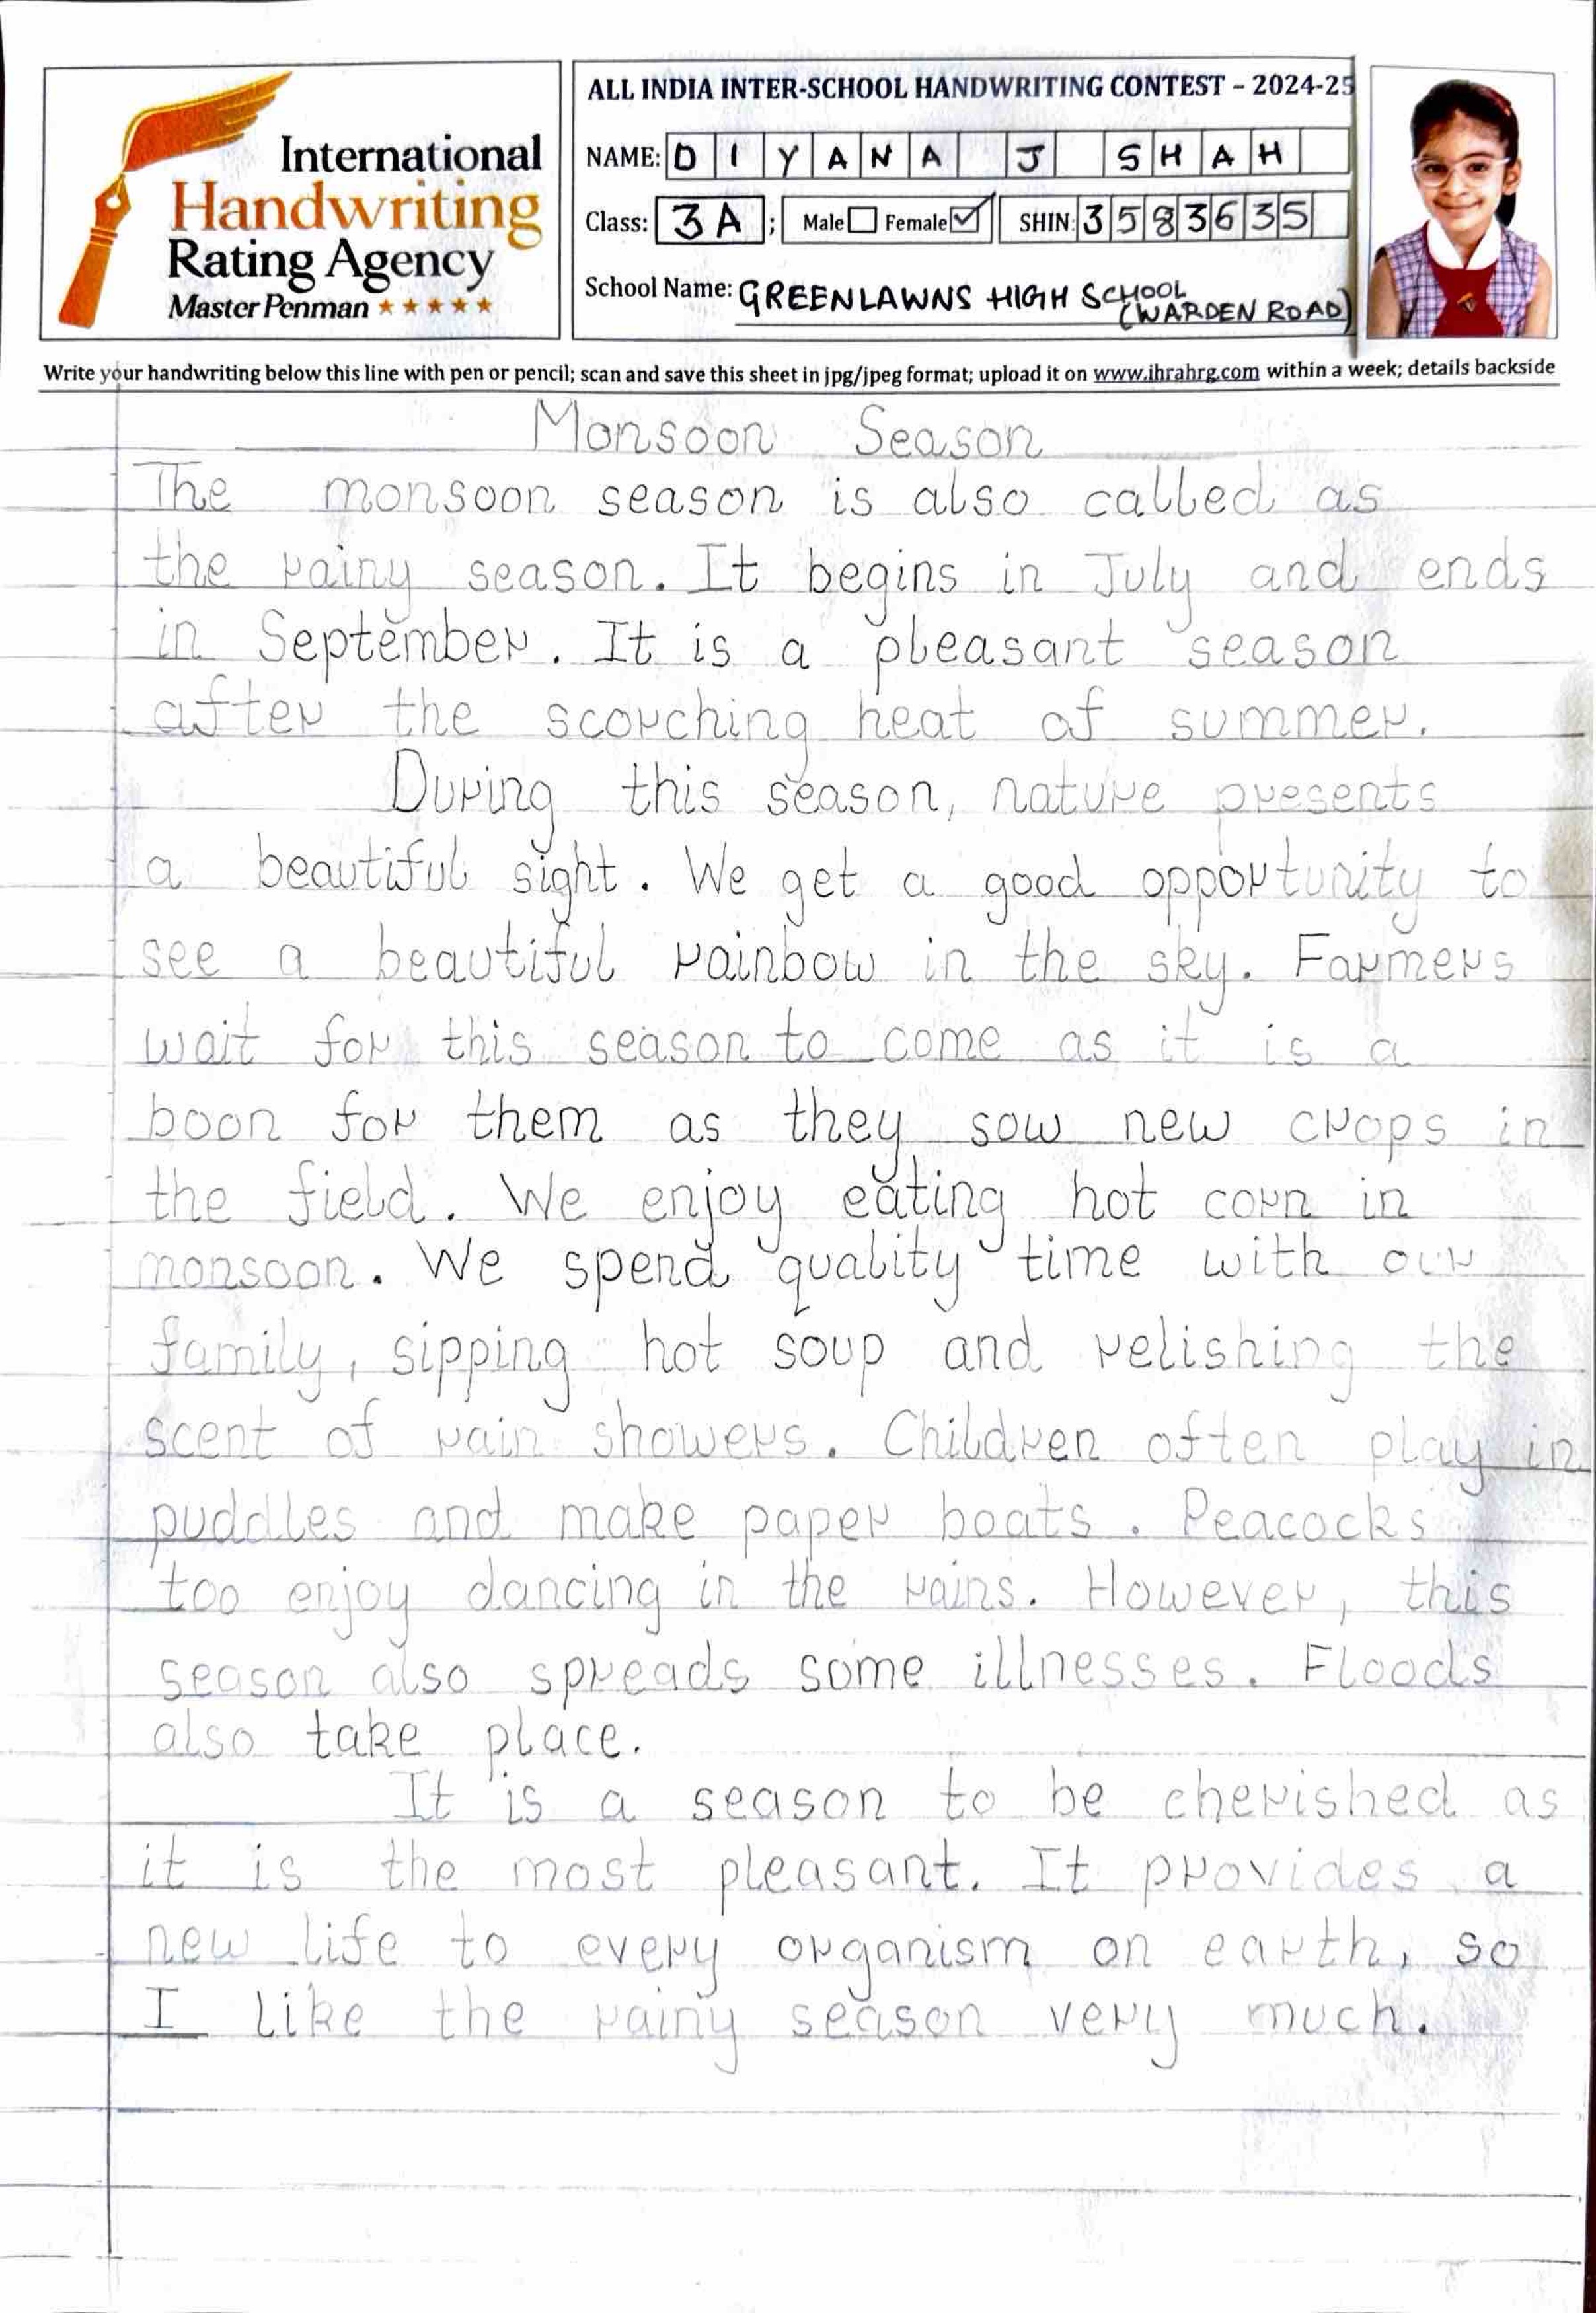 International
Handwriting
Rating Agency
Master Penman ★★★★★
ALL INDIA INTER-SCHOOL HANDWRITING CONTEST – 2024-25
NAME: DIYANA J SHAH
Class: 3A ; Male Female SHIN: 3583635
School Name: GREENLAWNS HIGH SCHOOL
(WARDEN ROAD)
Write your handwriting below this line with pen or pencil; scan and save this sheet in jpg/jpeg format; upload it on www.ihrahrg.com within a week; details backside
Monsoon Season
The monsoon season is also called as
the rainy season. It begins in July and ends
in September. It is a pleasant season
after the scorching heat of summer.
During this season, nature presents
a beautiful sight. We get a good opportunity to
see a beautiful rainbow in the sky. Farmers
wait for this season to come as it is a
boon for them as they sow new crops in
the field. We enjoy eating hot corn in
monsoon. We spend quality time with our
family, sipping hot soup and relishing the
scent of rain showers. Children often play in
puddles and make paper boats. Peacocks
too enjoy dancing in the rains. However, this
season also spreads some illnesses. Floods
also take place.
It is a season to be cherished as
it is the most pleasant. It provides a
new life to every organism on earth, so
I like the rainy season very much.